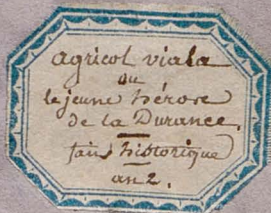 agricol viala
ou
le jeune héros
de la Durance.
fait historique
an 2.